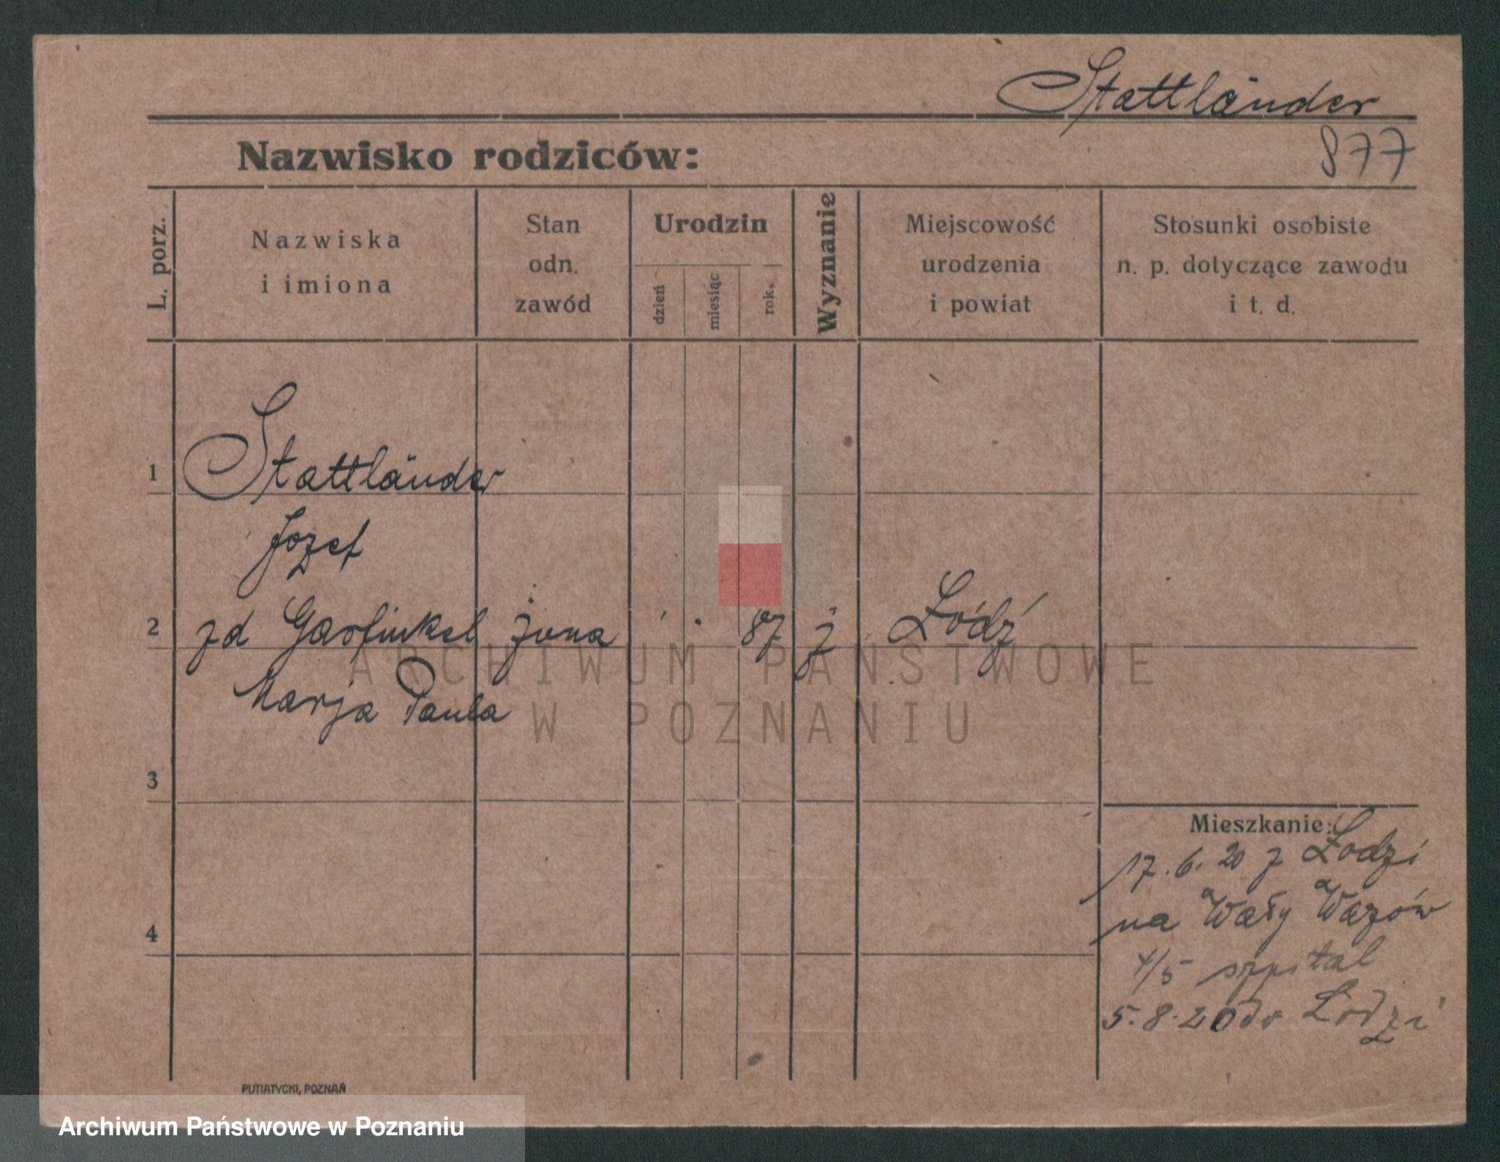 Stattländer
877
Nazwisko rodziców:
L. porz.
Nazwiska
i imiona
Stan
odn.
zawód
Urodzin
dzień
miesiąc
rok
Wyznanie
Miejscowość
urodzenia
i powiat
Stosunki osobiste
n. p. dotyczące zawodu
i t. d.
1
Stattländer
Jozef
2
zd Garfinkel żona 87 ż Łódź
Marja Paula
3
4
Mieszkanie:
17.6.20 z Łodzi
na Wały Wazów
4/5 szpital
5.8.20 do Łodzi
PUTIATYCKI, POZNAŃ
ARCHIWUM PAŃSTWOWE
W POZNANIU
Archiwum Państwowe w Poznaniu